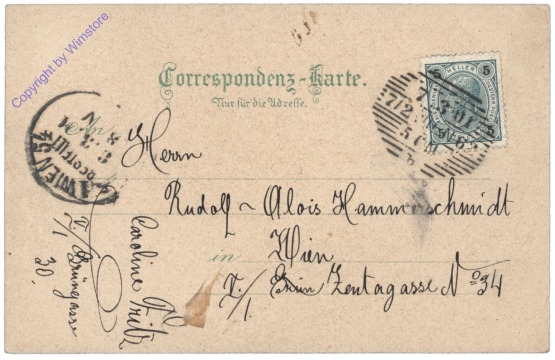 Copyright by Wimstore
Correspondenz-Karte.
Nur für die Adresse.
HELLER
5 5
5 5
WIEN 54
BESTELLT
Herrn
Rudolf - Alois Hammerschmidt
in Wien
V/1 Zentagasse No 34
Caroline
V/1 Grüngasse
30.